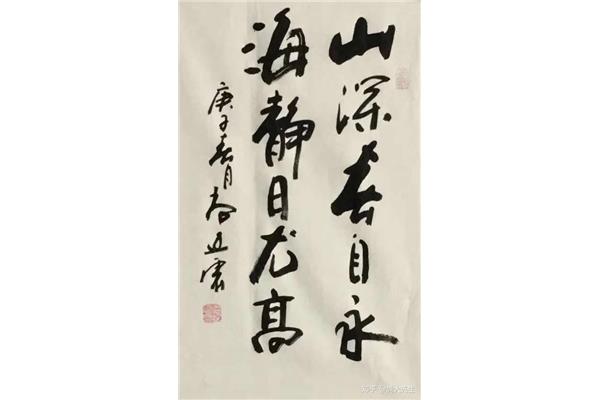 山深春自永
海静日尤高
庚子春月
知乎